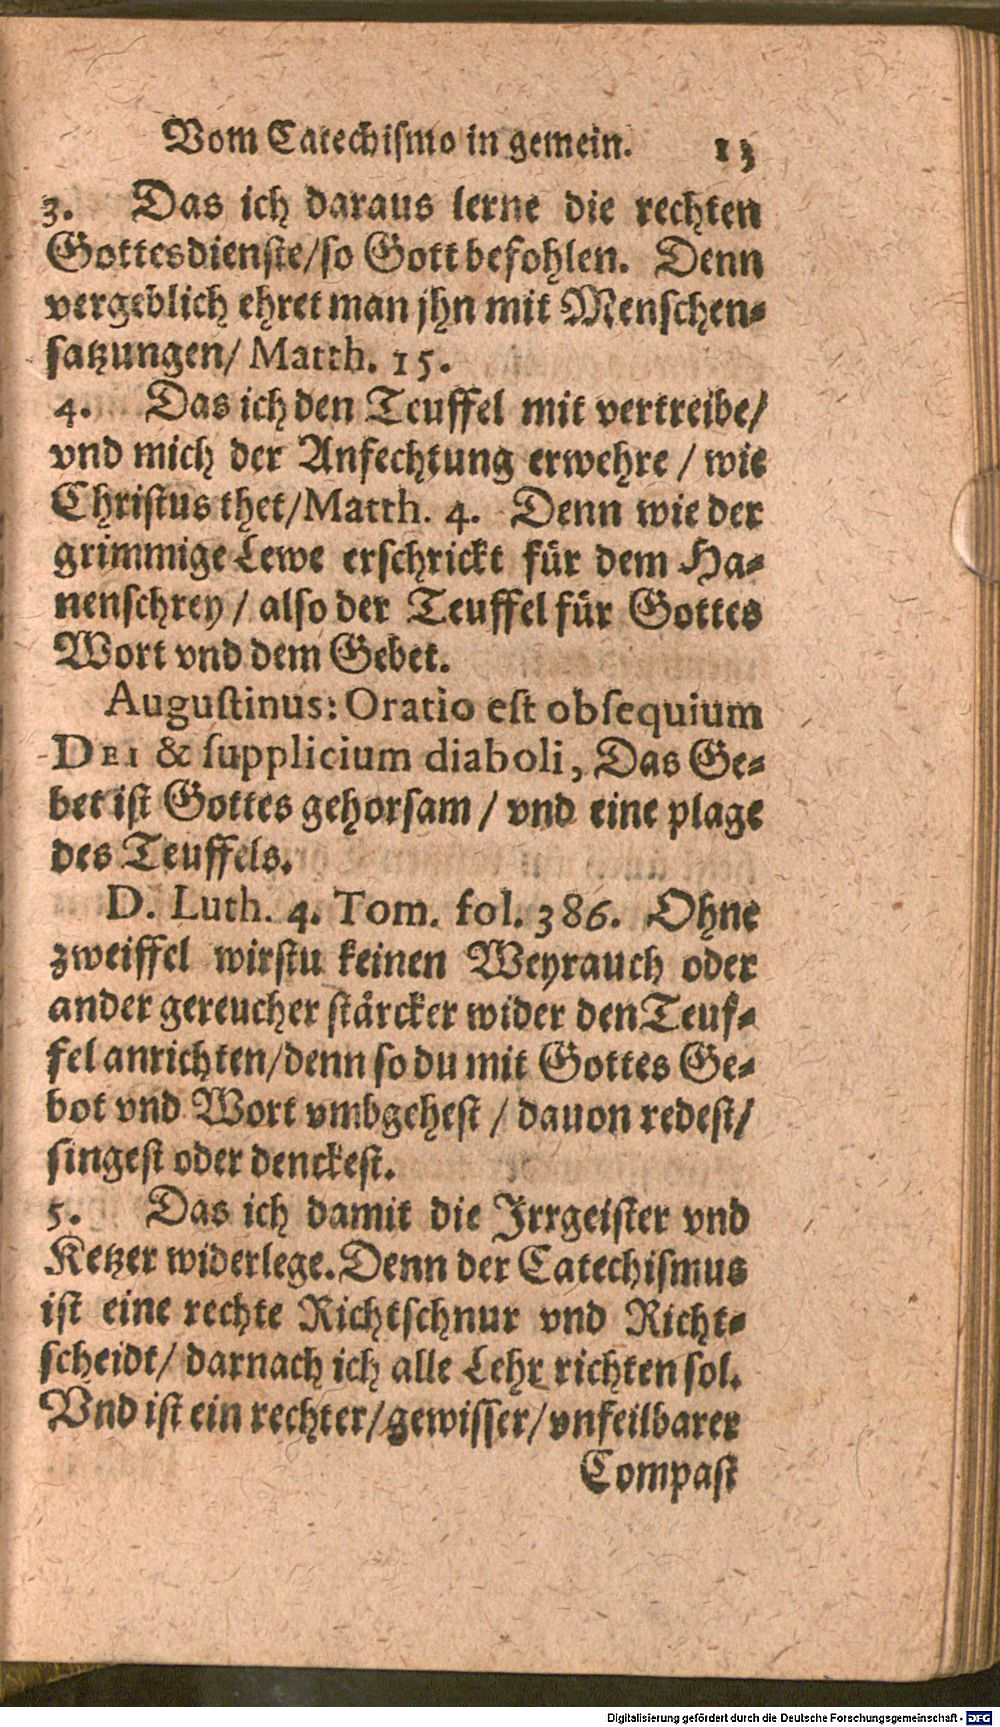 Vom Catechismo in gemein. 13
3. Das ich daraus lerne die rechten
Gottesdienste/so Gott befohlen. Denn
vergeblich ehret man jhn mit Menschen-
satzungen/ Matth. 15.
4. Das ich den Teuffel mit vertreibe/
vnd mich der Anfechtung erwehre / wie
Christus thet/Matth. 4. Denn wie der
grimmige Lewe erschrickt für dem Ha-
nenschrey / also der Teuffel für Gottes
Wort vnd dem Gebet.
Augustinus: Oratio est obsequium
DEI & supplicium diaboli, Das Ge-
bet ist Gottes gehorsam / vnd eine plage
des Teuffels.
D. Luth. 4. Tom. fol. 386. Ohne
zweiffel wirstu keinen Weyrauch oder
ander gereucher stärcker wider den Teuf-
fel anrichten/denn so du mit Gottes Ge-
bot vnd Wort vmbgehest / dauon redest/
singest oder denckest.
5. Das ich damit die Irrgeister vnd
Ketzer widerlege. Denn der Catechismus
ist eine rechte Richtschnur vnd Richt-
scheidt/ darnach ich alle Lehr richten sol.
Vnd ist ein rechter/gewisser/vnfeilbarer
Compast
Digitalisierung gefördert durch die Deutsche Forschungsgemeinschaft - DFG